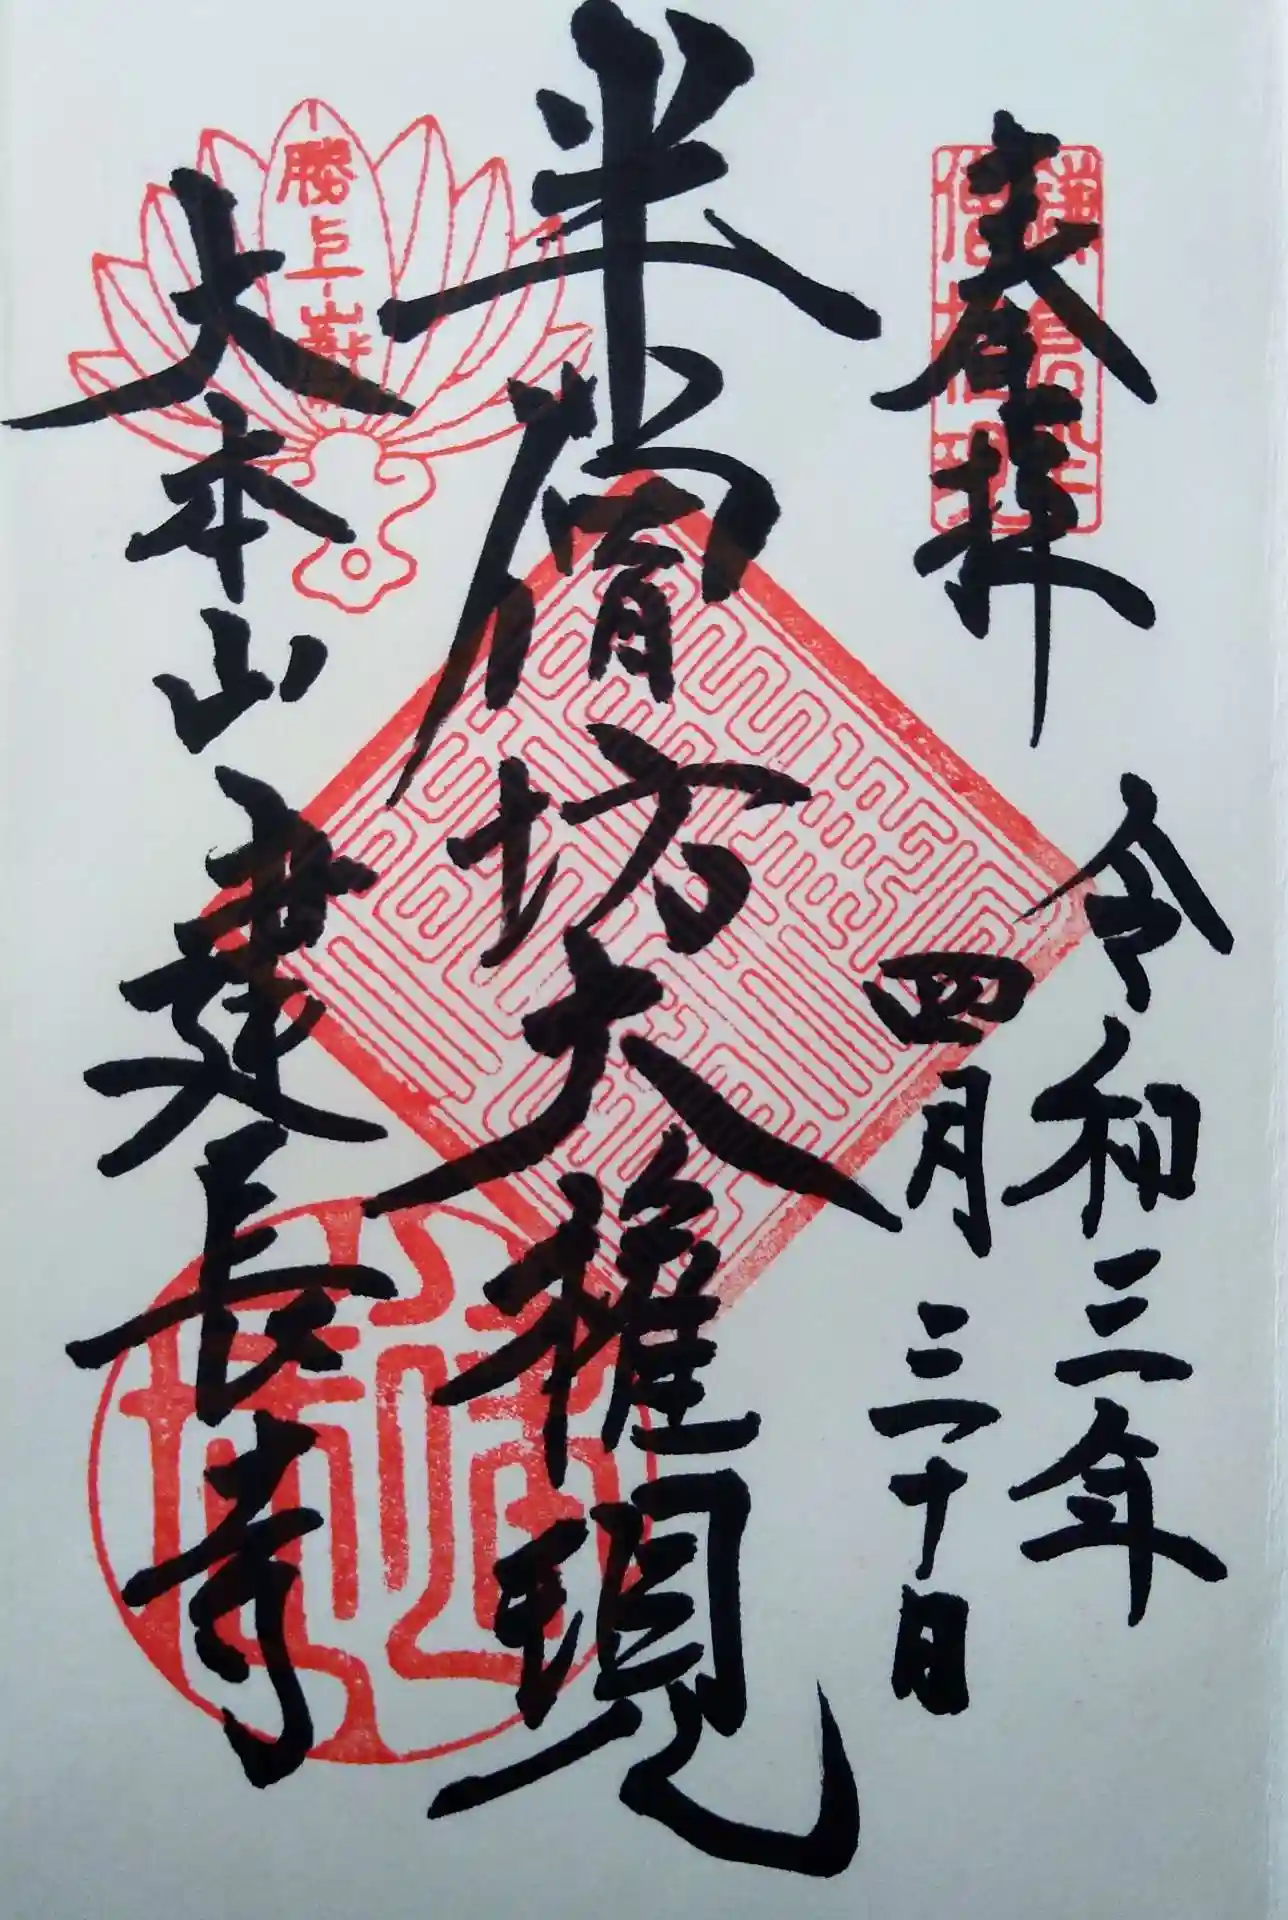 奉拝
令和三年
四月三十日
半僧坊大権現
勝上嶽
大本山建長寺